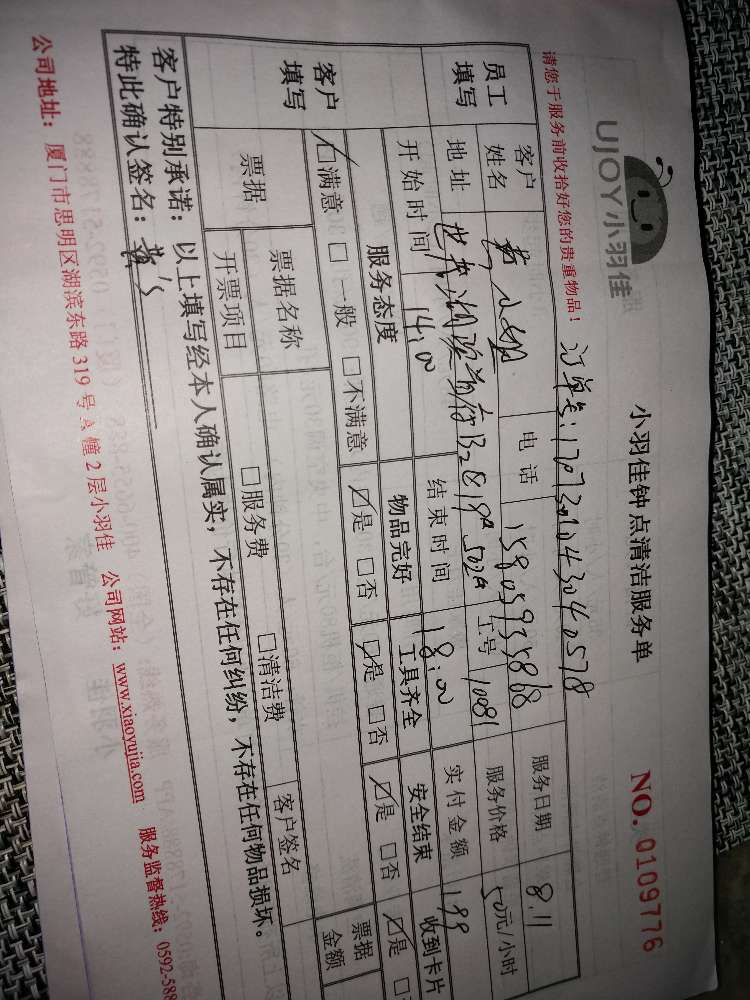 UJOY小羽佳
小羽佳钟点清洁服务单
NO. 0109776
请您于服务前收拾好您的贵重物品！
员工填写
客户姓名
电话 15805935868
服务日期 8.11
地址
工号 10081
服务价格 50元/小时
开始时间 14:00
结束时间 18:00
实付金额 199
客户填写
服务态度 物品完好 工具齐全 安全结束 收到卡片
☑满意 □一般 □不满意 ☑是 □否 ☑是 □否 ☑是 □否 ☑是 □
票据 票据名称 □服务费 □清洁费 客户签名 票据金额
开票项目
客户特别承诺：以上填写经本人确认属实，不存在任何纠纷，不存在任何物品损坏。
特此确认签名：
公司地址：厦门市思明区湖滨东路319号A幢2层小羽佳 公司网站：www.xiaoyujia.com 服务监督热线：0592-588